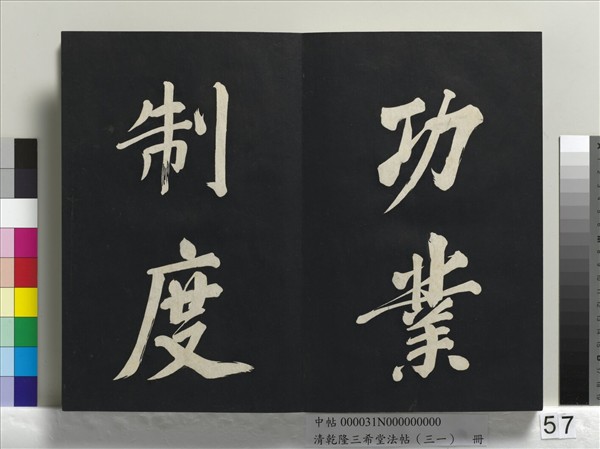 功業
制度
中帖 000031N000000000
清乾隆三希堂法帖(三一) 冊
57